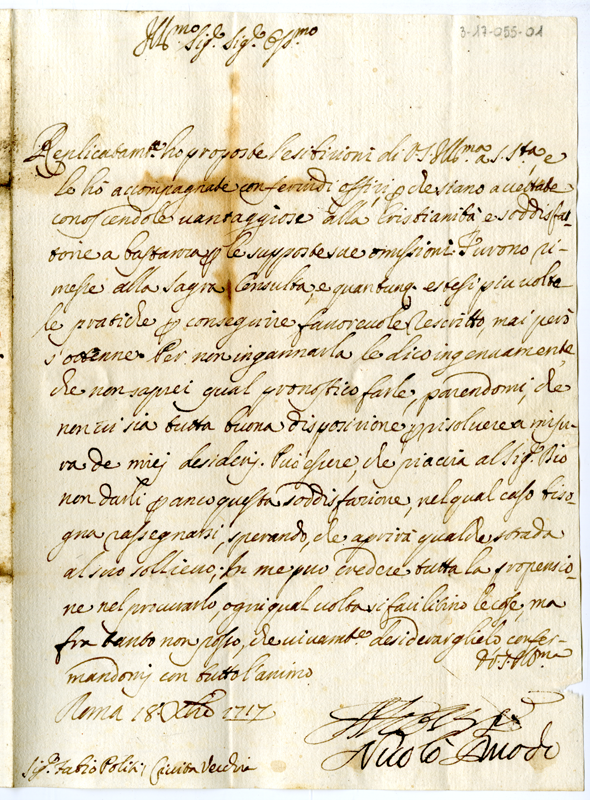 3-17-055-01
Ill.mo Sig.r Sig.r Oss.mo
Replicatam.te ho proposte l'esibizioni di V.S. Ill.ma a S. S.tà, e
le hò accompagnate con fervidi offizi, p che siano accettate
conoscendole vantaggiose alla Cristianità e soddisfat-
torie a bastanza p le supposte sue omissioni. Furono ri-
messe alla Sagra Consulta, e quantunq. estesi più volte
le pratiche p conseguire favorevole Rescritto, mai però
s'ottenne. Per non ingannarla le dico ingenuamente,
che non saprei qual pronostico farle, parendomi, che
non vi sia tutta buona disposizione p risolvere a misu-
ra de miej desiderij. Può essere, che piaccia al Sig.r Dio
non darli p anco questa soddisfazione, nel qual caso biso
gna rassegnarsi, sperando, che aprirà qualche strada
al suo sollievo; In me può credere tutta la propensio-
ne nel procurarlo, ogni qual volta si facilitino le cose, ma
fra tanto non posso, che vivam.te desiderarglielo confer-
mandomi con tutto l'animo
di V.S. Ill.ma
Roma 18 Xbre 1717
Nicolò
Sig.r Fabio Civita Vecchia